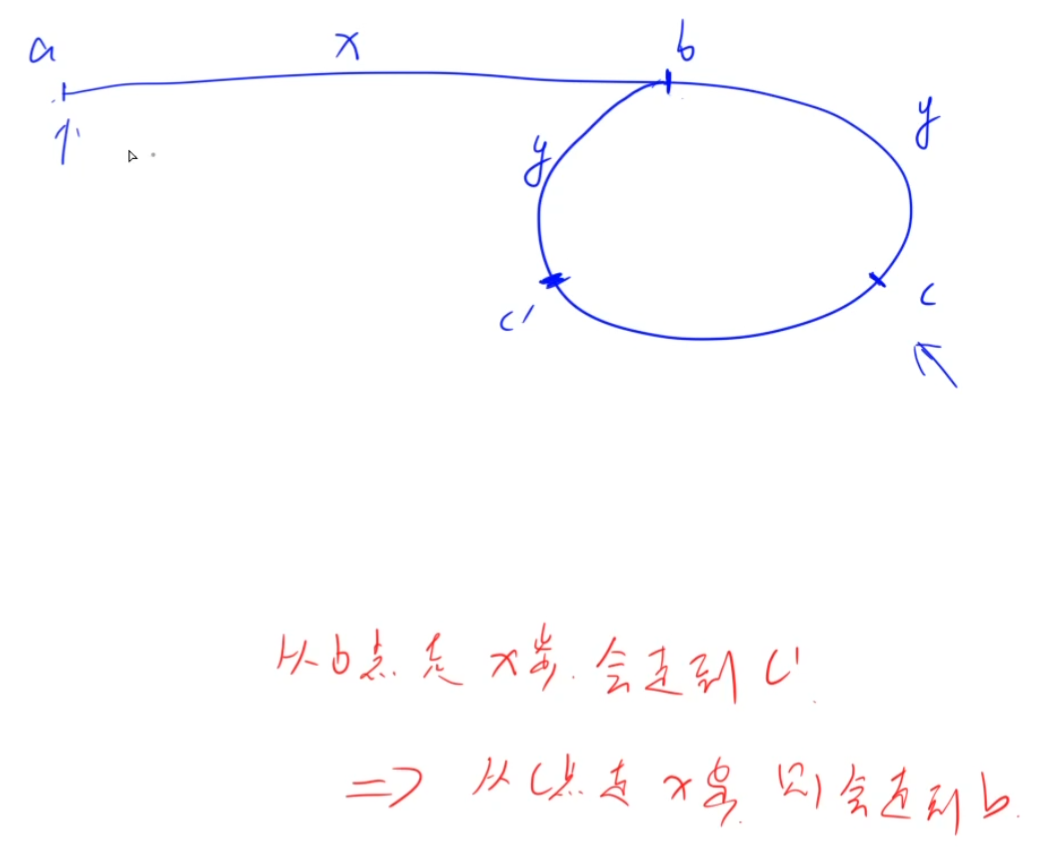 a x b
y y
c' c
从b点走 x步. 会走到 c'
=> 从c点走 x步 则会走到 b.